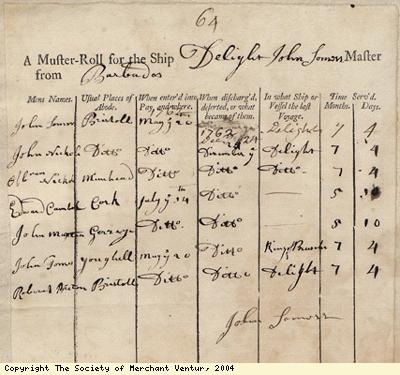 64
A Muster-Roll for the Ship Delight John Somers Master
from Barbados
Mens Names. Usual Places of Abode. When enter'd into Pay, and where. When discharg'd, deserted, or what became of them. In what Ship or Vessel the last Voyage. Time Serv'd. Months. Days.
John Somers Bristoll May ye 20 1762 Delight 7 4
John Nichols Ditto Ditto December ye Delight 7 4
Minehead Ditto Ditto Ditto 7 4
Edward Cork July ye 14th Ditto 5
John Ditto Ditto 5 10
John youghell May ye 20 Ditto 7 4
Robert Bristoll Ditto Ditto Delight 7 4
John Somers
Copyright The Society of Merchant Ventur, 2004